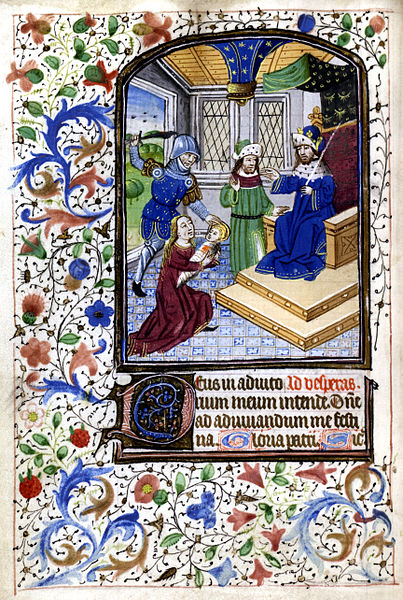 Deus in adiuto Ad vesperas
rium meum intende. Dñe
ad adiuuandum me festi
na. Gloria patri. Sic